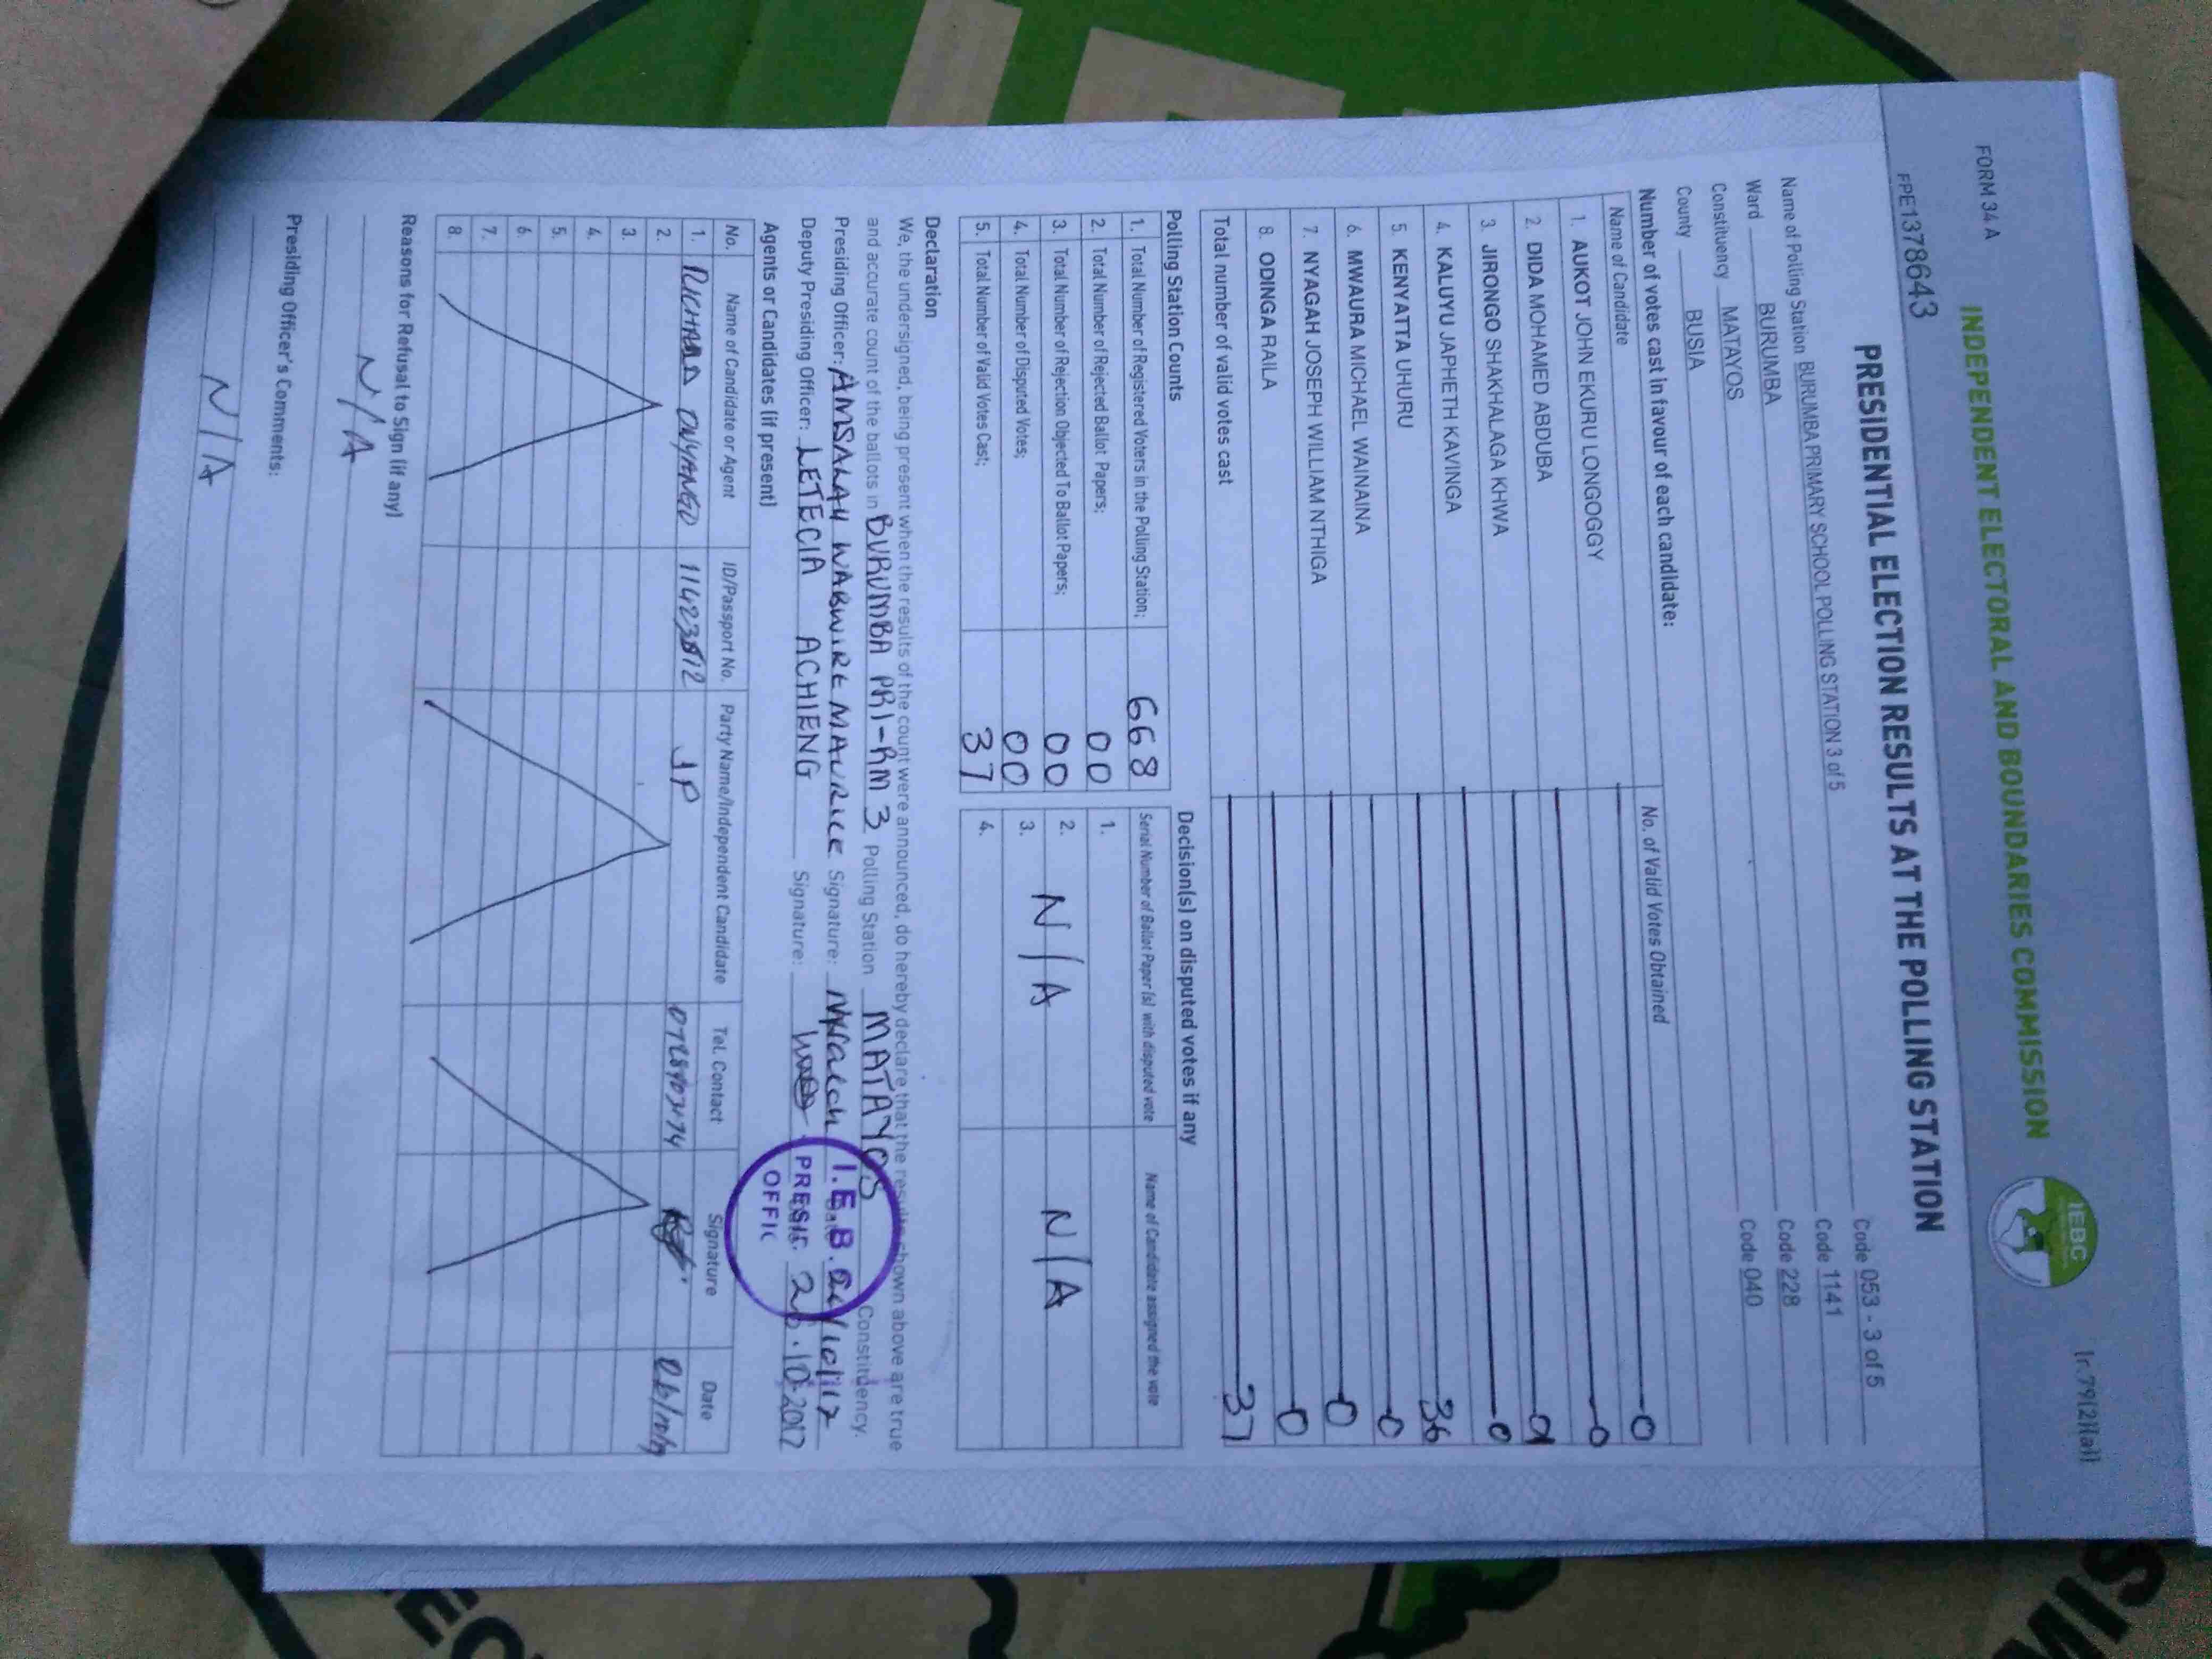 FORM 34 A
[r.79(2)(a)]
INDEPENDENT ELECTORAL AND BOUNDARIES COMMISSION
IEBC
FPE1378643
PRESIDENTIAL ELECTION RESULTS AT THE POLLING STATION
Name of Polling Station BURUMBA PRIMARY SCHOOL POLLING STATION 3 of 5 Code 053 - 3 of 5
Ward BURUMBA Code 1141
Constituency MATAYOS Code 228
County BUSIA Code 040
Number of votes cast in favour of each candidate:
Name of Candidate No. of Valid Votes Obtained
1. AUKOT JOHN EKURU LONGOGGY 0
2. DIDA MOHAMED ABDUBA 0
3. JIRONGO SHAKHALAGA KHWA 01
4. KALUYU JAPHETH KAVINGA 0
5. KENYATTA UHURU 36
6. MWAURA MICHAEL WAINAINA 0
7. NYAGAH JOSEPH WILLIAM NTHIGA 0
8. ODINGA RAILA 0
Total number of valid votes cast 37
Polling Station Counts
1. Total Number of Registered Voters in the Polling Station; 668
2. Total Number of Rejected Ballot Papers; 00
3. Total Number of Rejection Objected To Ballot Papers; 00
4. Total Number of Disputed Votes; 00
5. Total Number of Valid Votes Cast; 37
Decision(s) on disputed votes if any
Serial Number of Ballot Paper (s) with disputed vote Name of Candidate assigned the vote
1.
2. N/A N/A
3.
4.
Declaration
We, the undersigned, being present when the results of the count were announced, do hereby declare that the results shown above are true
and accurate count of the ballots in BURUMBA PRI-RM 3 Polling Station MATAYOS Constituency.
Presiding Officer: AMSALAH WABWIRE MAURICE Signature: 26/10/17
Deputy Presiding Officer: LETECIA ACHIENG Signature: 26.10.2017
I.E.B.
PRESID
OFFIC
Agents or Candidates (if present)
No. Name of Candidate or Agent ID/Passport No. Party Name/Independent Candidate Tel. Contact Signature Date
1. RICHARD ONYANGO JP
2.
3.
4.
5.
6.
7.
8.
Reasons for Refusal to Sign (if any)
N/A
Presiding Officer's Comments:
N/A